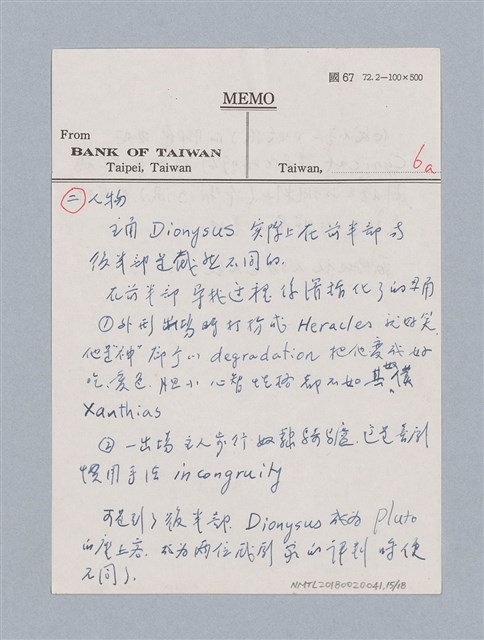 國 67 72.2—100×500
MEMO
From
BANK OF TAIWAN
Taipei, Taiwan
Taiwan,
6a
二 人物
主角 Dionysus 實際上在前半部與
後半部是截然不同的.
在前半部 尋找过程 係滑稽化了的丑角
① 外形 出場時打扮成 Heracles 就好笑.
他是"神" 却予以 degradation 把他變成好
吃、愛色、胆小 心智性格都不如其奴僕
Xanthias
② 一出場 主人步行 奴隸騎驢. 这是喜劇
慣用手法 incongruity
可是到了後半部. Dionysus 成為 Pluto
的座上客. 成為兩位戲劇家的評判時便
不同了.
NMTL20180020041,15/18